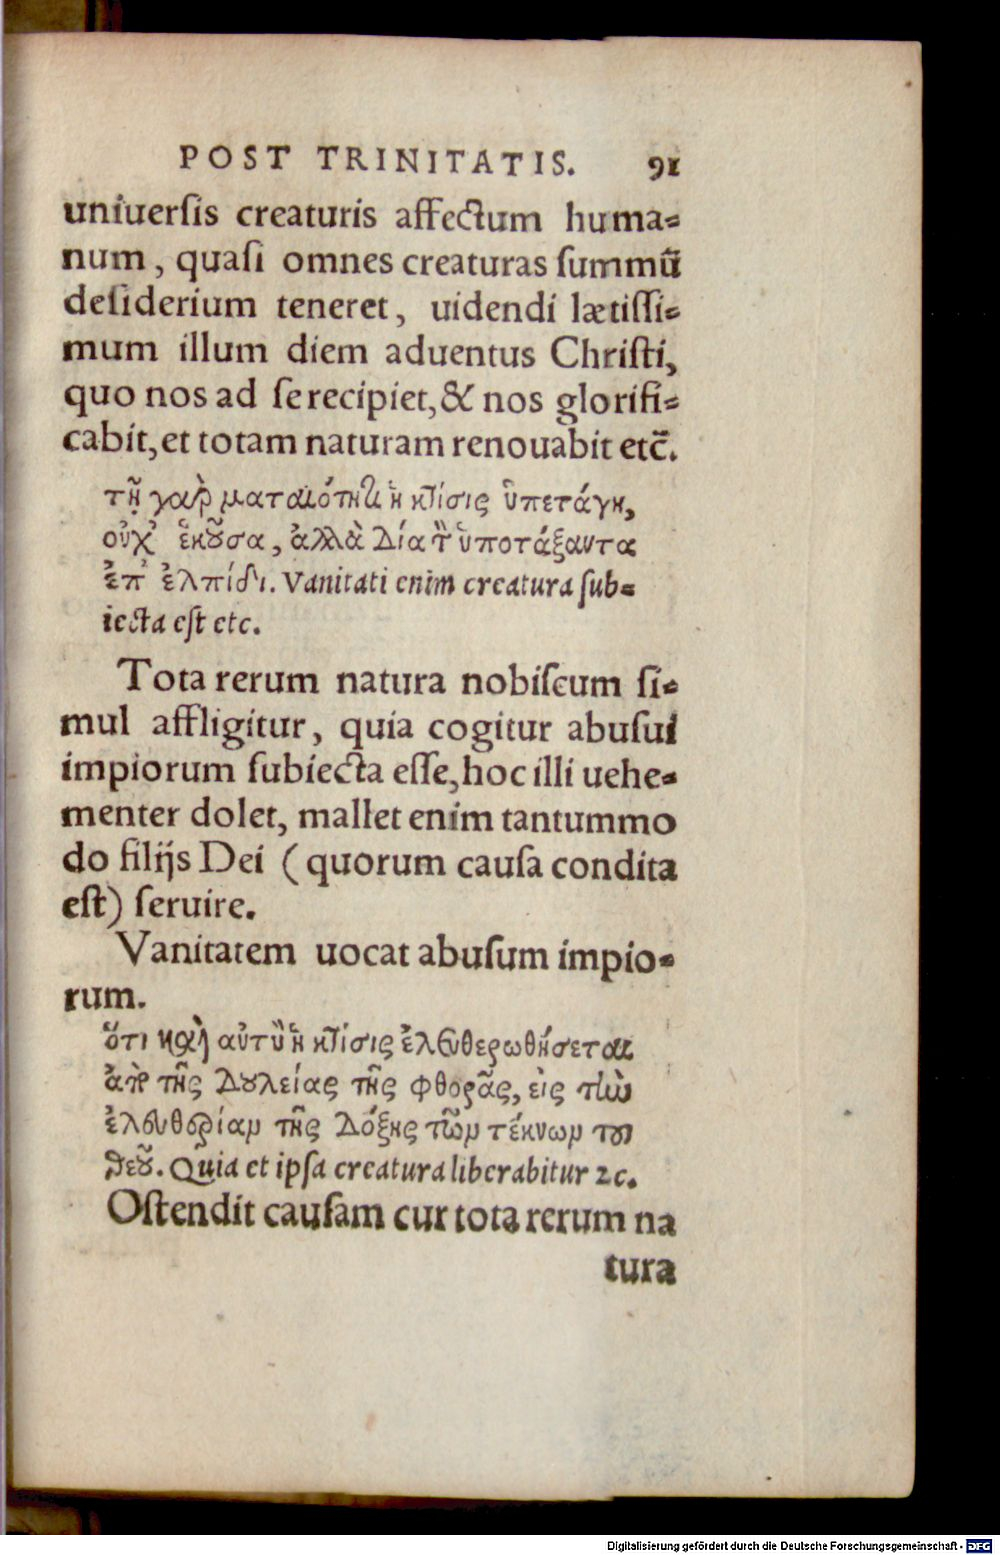 POST TRINITATIS. 91
uniuerſis creaturis affectum huma-
num, quaſi omnes creaturas ſummū
deſiderium teneret, uidendi lætiſſi-
mum illum diem aduentus Chriſti,
quo nos ad ſe recipiet, & nos glorifi-
cabit, et totam naturam renouabit etc̄.
τῇ γαρ ματαιότητι ἡ κτίσις ὑπετάγη,
οὐχ' ἑκοῦσα, ἀλλὰ δία τὸν ὑποτάξαντα
ἐπ' ἐλπίδι. Vanitati enim creatura ſub-
iecta eſt etc.
Tota rerum natura nobiſcum ſi-
mul affligitur, quia cogitur abuſui
impiorum ſubiecta eſſe, hoc illi uehe-
menter dolet, mallet enim tantummo
do filijs Dei (quorum cauſa condita
eſt) ſeruire.
Vanitatem uocat abuſum impio-
rum.
ὅτι καὶ αὐτὴ ἡ κτίσις ἐλευθερωθήσεται
ἀπὸ τῆς δουλείας τῆς φθορᾶς, εἰς τὴν
ἐλευθερίαν τῆς δόξης τῶν τέκνων του
θεοῦ. Quia et ipſa creatura liberabitur ꝛc.
Oſtendit cauſam cur tota rerum na
tura
Digitalisierung gefördert durch die Deutsche Forschungsgemeinschaft - DFG